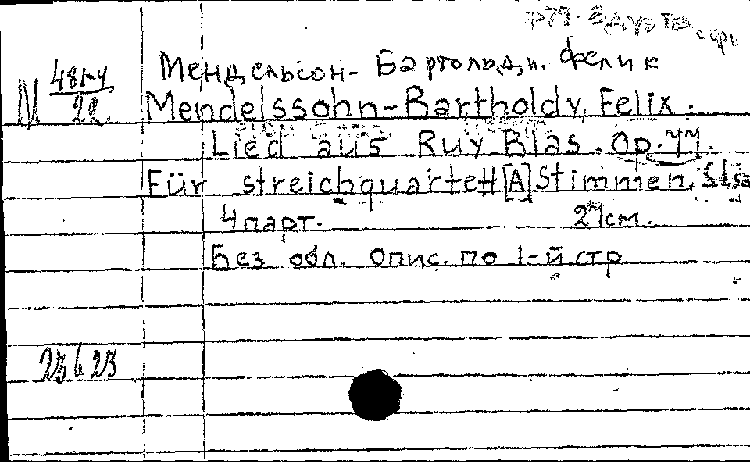 М 481-4
22
Мендельсон-Бартольди, Феликс
Mendelssohn-Bartholdy, Felix.
Lied aus Ruy Blas. Op. 77.
Für streichquartett [A] Stimmen.
4 парт. 27 см.
Без обл. Опис. по 1-й стр